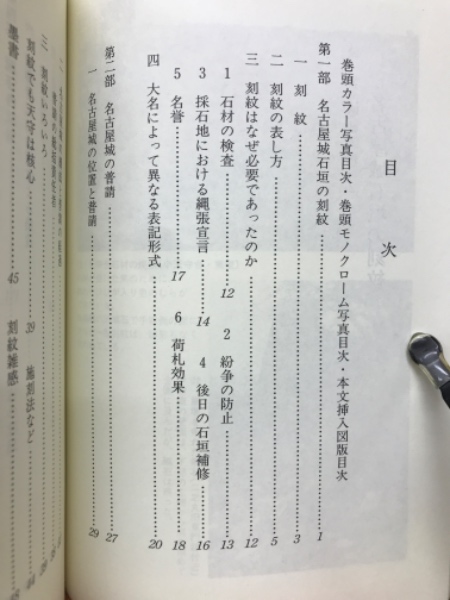 目次
巻頭カラー写真目次・巻頭モノクローム写真目次・本文挿入図版目次
第一部 名古屋城石垣の刻紋……1
一 刻紋……3
二 刻紋の表し方……5
三 刻紋はなぜ必要であったのか……12
1 石材の検査……12 2 紛争の防止……13
3 採石地における縄張宣言……14 4 後日の石垣補修……16
5 名誉……17 6 荷札効果……18
四 大名によって異なる表記形式……20
第二部 名古屋城の普請……27
一 名古屋城の位置と普請……29
三 刻紋いろいろ
刻紋でも天守は核心……39 施刻法など
墨書……45 刻紋雑感